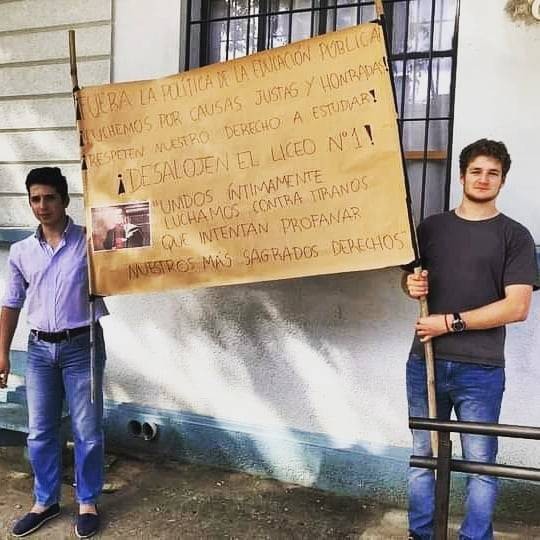 ¡FUERA LA POLÍTICA DE LA EDUCACIÓN PÚBLICA!
¡LUCHEMOS POR CAUSAS JUSTAS Y HONRADAS!
¡RESPETEN NUESTRO DERECHO A ESTUDIAR!
¡DESALOJEN EL LICEO Nº1!
"UNIDOS ÍNTIMAMENTE
LUCHAMOS CONTRA TIRANOS
QUE INTENTAN PROFANAR
NUESTROS MÁS SAGRADOS DERECHOS"